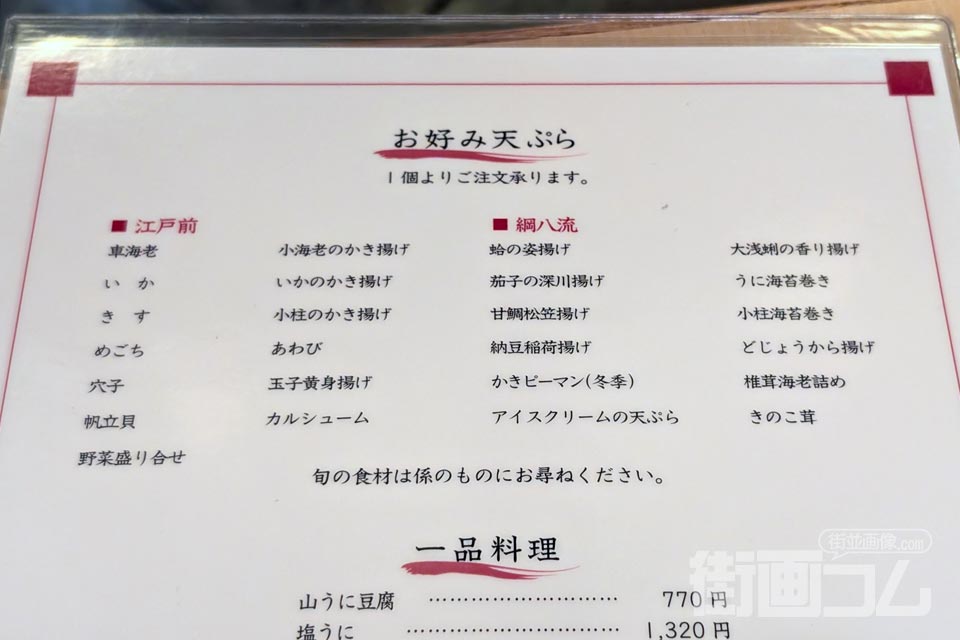 お好み天ぷら
1個よりご注文承ります。
■ 江戸前
車海老 小海老のかき揚げ
いか いかのかき揚げ
きす 小柱のかき揚げ
めごち あわび
穴子 玉子黄身揚げ
帆立貝 カルシューム
野菜盛り合せ
■ 綱八流
蛤の姿揚げ 大浅蜊の香り揚げ
茄子の深川揚げ うに海苔巻き
甘鯛松笠揚げ 小柱海苔巻き
納豆稲荷揚げ どじょうから揚げ
かきピーマン(冬季) 椎茸海老詰め
アイスクリームの天ぷら きのこ茸
旬の食材は係のものにお尋ねください。
一品料理
山うに豆腐 ………………………… 770円
塩うに ………………………… 1,320円
街並画像.com
街画コム